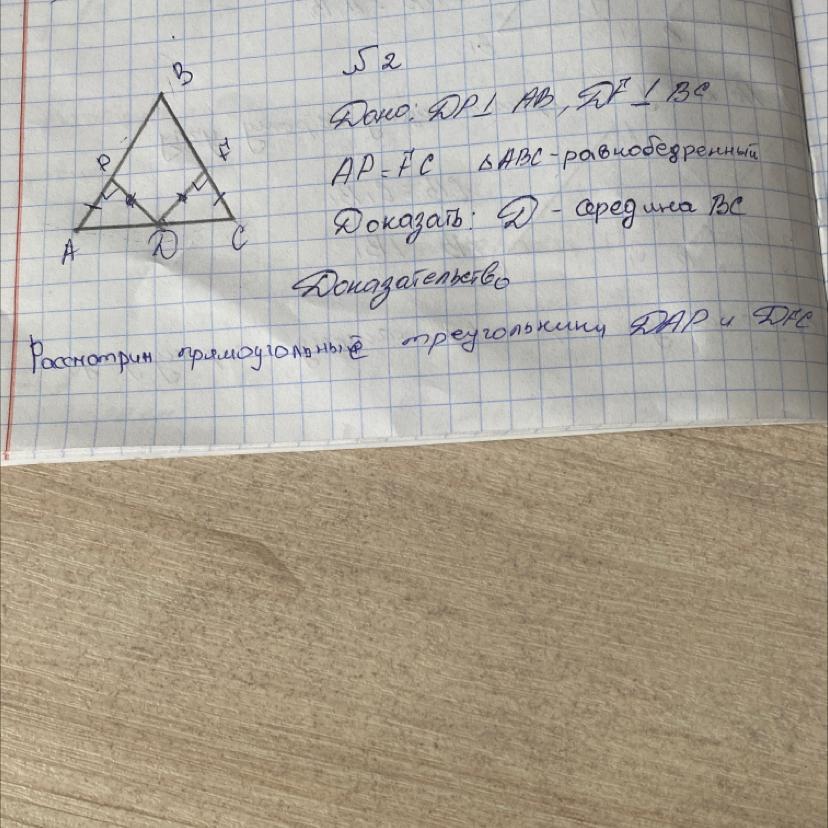 B
№2
Дано: DP⊥ AB, DF⊥ BC
P
F
AP = FC △ABC - равнобедренный
Доказать: D - середина BC
A
D
C
Доказательство
Рассмотрим прямоугольные треугольники DAP и DFC